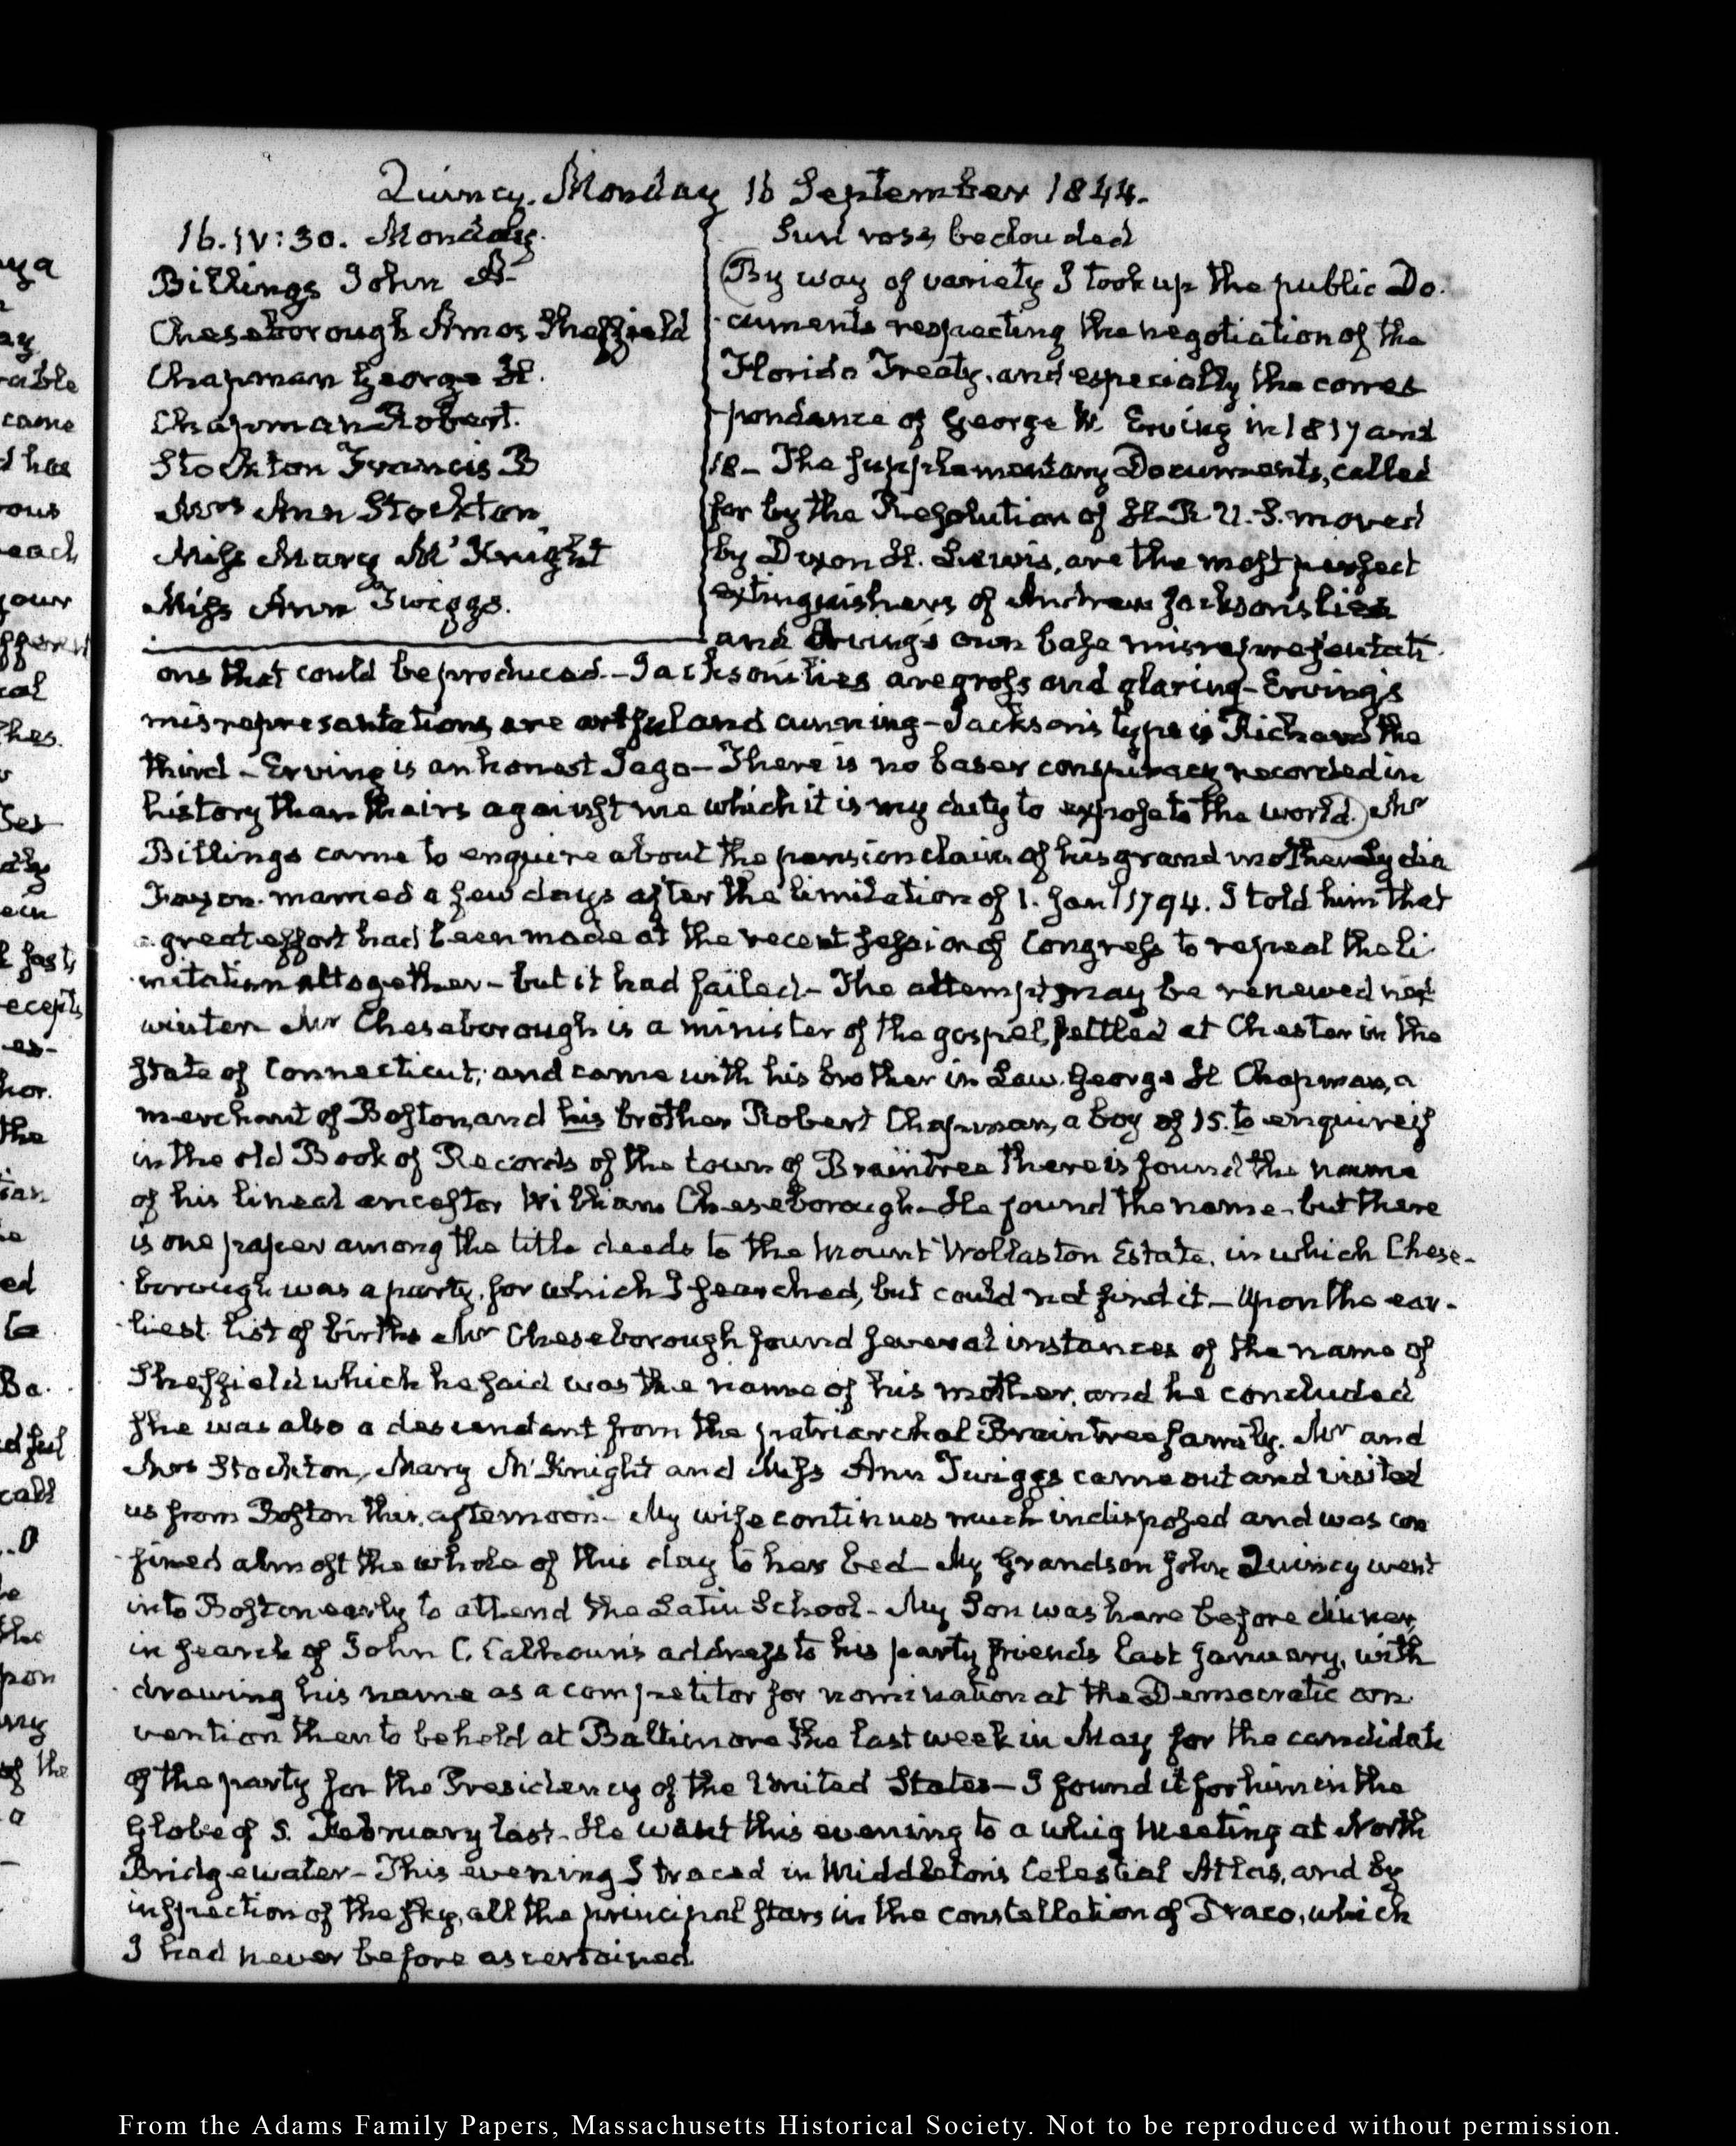 Quincy. Monday 16 September 1844.
16. IV:30. Monday.
Billings John A
Cheseborough Amos Sheffield
Chapman George H.
Chapman Robert.
Stockton Francis B
Mrs Ann Stockton
Miss Mary McKnight
Miss Ann Twiggs.
Sun rose, beclouded
By way of variety I took up the public Do-
cuments respecting the negotiation of the
Florida Treaty, and especially the corres
pondence of George W. Erving in 1817 and
18– The supplementary Documents, called
for by the Resolution of H.R.U.S. moved
by Dixon H. Lewis, are the most perfect
extinguishers of Andrew Jackson's lies
and Erving's own base misrepresentati-
ons that could be produced.– Jackson's lies are gross and glaring– Erving's
misrepresentations are artful and cunning– Jackson's type is Richard the
third– Erving is an honest Iago– There is no baser conspiracy recorded in
history than theirs against me which it is my duty to expose to the world. Mr
Billings came to enquire about the pension claim of his grandmother Lydia
Faxon. married a few days after the limitation of 1. Jany 1794. I told him that
a great effort had been made at the recent session of Congress to repeal the li-
mitation altogether– but it had failed– The attempt may be renewed next
winter Mr Cheseborough is a minister of the gospel, settled at Chester in the
State of Connecticut; and came with his brother in Law. George H Chapman, a
merchant of Boston, and his brother Robert Chapman, a boy of 15. to enquire if
in the old Book of Records of the town of Braintree there is found the name
of his lineal ancestor William Cheseborough– He found the name– but there
is one paper among the title deeds to the Mount Wollaston Estate, in which Chese-
borough was a party, for which I searched, but could not find it– Upon the ear-
liest list of births Mr Cheseborough found several instances of the name of
Sheffield which he said was the name of his mother, and he concluded
she was also a descendant from the patriarchal Braintree family. Mr and
Mrs Stockton, Mary McKnight and Miss Ann Twiggs came out and visited
us from Boston this afternoon– My wife continues much indisposed and was con
fined almost the whole of this day to her bed– My Grandson John Quincy went
into Boston early to attend the Latin School– My Son was here before dinner,
in search of John C. Calhoun's address to his party friends last January, with
drawing his name as a competitor for nomination at the Democratic con-
vention then to be held at Baltimore the last week in May for the candidate
of the party for the Presidency of the United States– I found it for him in the
Globe of 5. February last– He went this evening to a whig Meeting at North
Bridgewater– This evening I traced in Middleton's Celestial Atlas, and by
inspection of the sky, all the principal stars in the constellation of Draco, which
I had never before ascertained
From the Adams Family Papers, Massachusetts Historical Society. Not to be reproduced without permission.